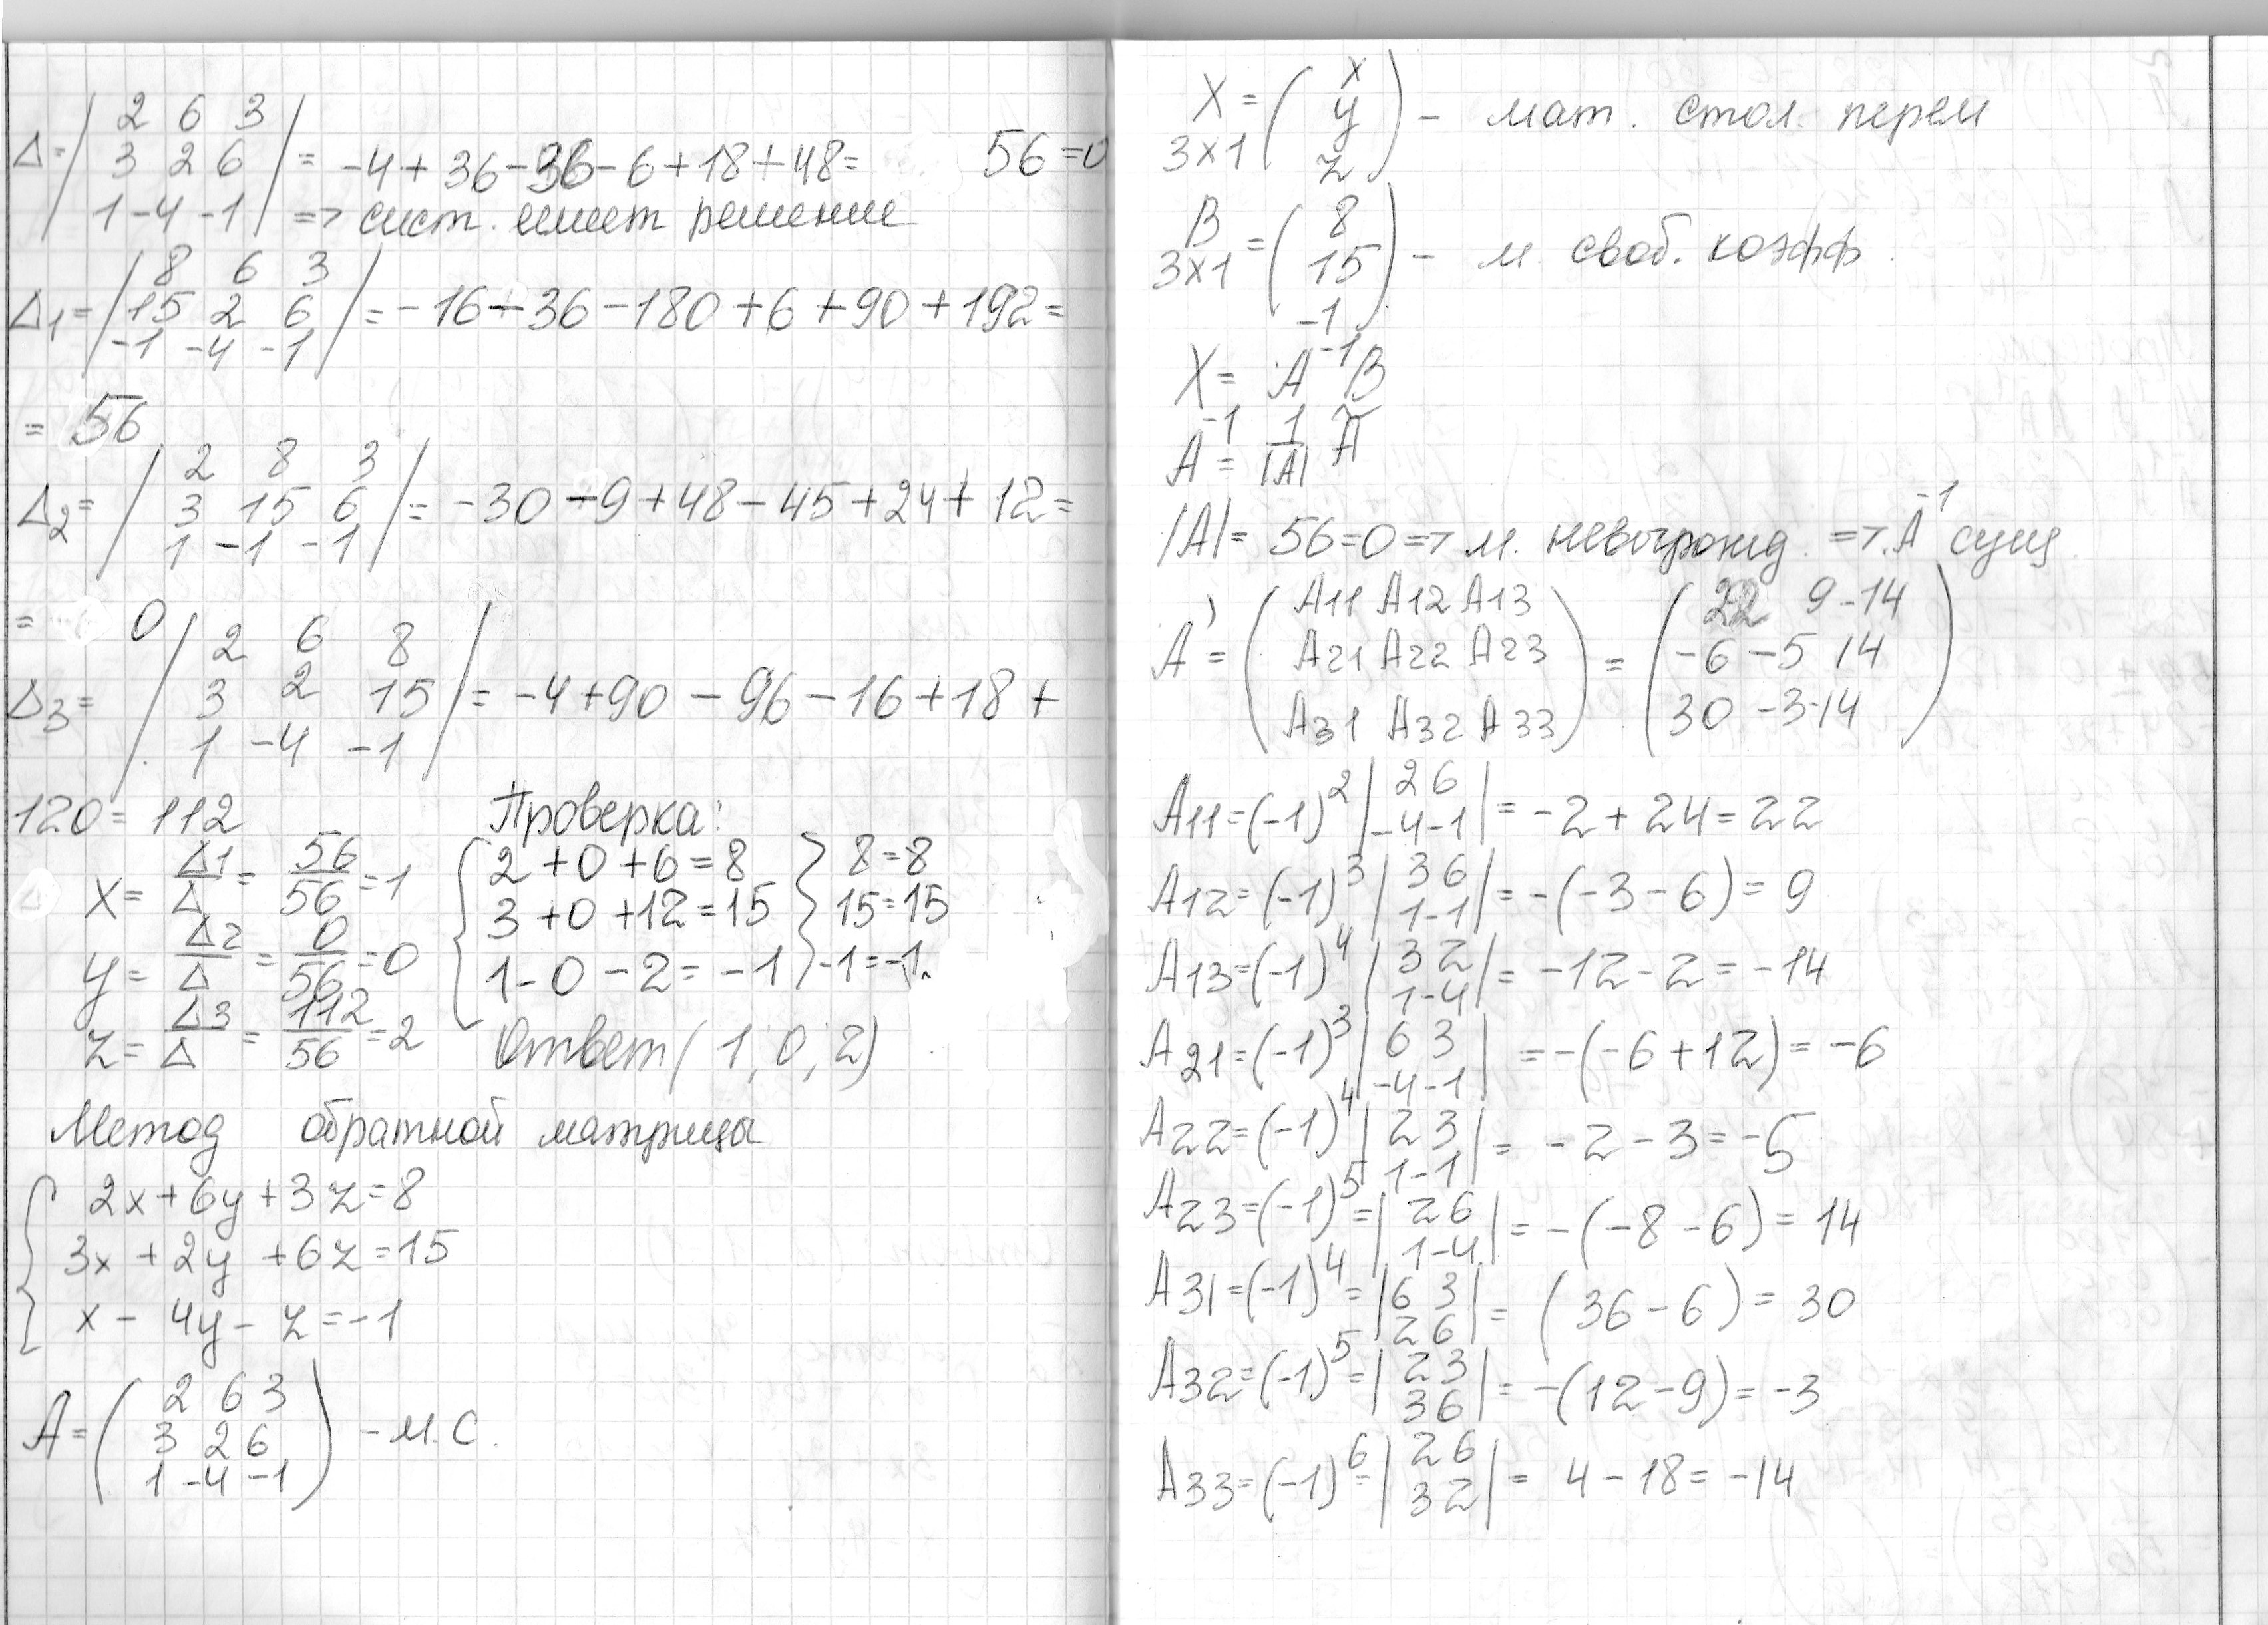 Δ = | 2 6 3 |
| 3 2 6 | = -4 + 36 - 36 - 6 + 18 + 48 = 56 = 0
| 1 -4 -1 | => сист. имеет решение
Δ1 = | 8 6 3 |
| 15 2 6 | = -16 - 36 - 180 + 6 + 90 + 192 =
| -1 -4 -1 |
= 56
Δ2 = | 2 8 3 |
| 3 15 6 | = -30 - 9 + 48 - 45 + 24 + 12 =
| 1 -1 -1 |
= 0
Δ3 = | 2 6 8 |
| 3 2 15 | = -4 + 90 - 96 - 16 + 18 +
| 1 -4 -1 |
120 = 112
x = Δ1/Δ = 56/56 = 1
y = Δ2/Δ = 0/56 = 0
z = Δ3/Δ = 112/56 = 2
Проверка:
{ 2 + 0 + 6 = 8 } 8 = 8
3 + 0 + 12 = 15 } 15 = 15
1 - 0 - 2 = -1 } -1 = -1
Ответ ( 1, 0, 2 )
Метод обратной матрицы
{ 2x + 6y + 3z = 8
3x + 2y + 6z = 15
x - 4y - z = -1
A = ( 2 6 3 )
( 3 2 6 ) - м.с.
( 1 -4 -1 )
X 3x1 = ( x y z ) - мат. стол. перем
B 3x1 = ( 8 15 -1 ) - м. своб. коэфф.
X = A⁻¹B
A⁻¹ = 1/|A| Ã
|A| = 56 = 0 => м. невырожд. => A⁻¹ сущ.
A' = ( A11 A12 A13 ) = ( 22 9 -14 )
( A21 A22 A23 ) ( -6 -5 14 )
( A31 A32 A33 ) ( 30 -3 -14 )
A11 = (-1)² | 2 6 | -4 -1 | = -2 + 24 = 22
A12 = (-1)³ | 3 6 | 1 -1 | = -(-3 - 6) = 9
A13 = (-1)⁴ | 3 2 | 1 -4 | = -12 - 2 = -14
A21 = (-1)³ | 6 3 | -4 -1 | = -(-6 + 12) = -6
A22 = (-1)⁴ | 2 3 | 1 -1 | = -2 - 3 = -5
A23 = (-1)⁵ = | 2 6 | 1 -4 | = -(-8 - 6) = 14
A31 = (-1)⁴ = | 6 3 | 2 6 | = (36 - 6) = 30
A32 = (-1)⁵ = | 2 3 | 3 6 | = -(12 - 9) = -3
A33 = (-1)⁶ = | 2 6 | 3 2 | = 4 - 18 = -14